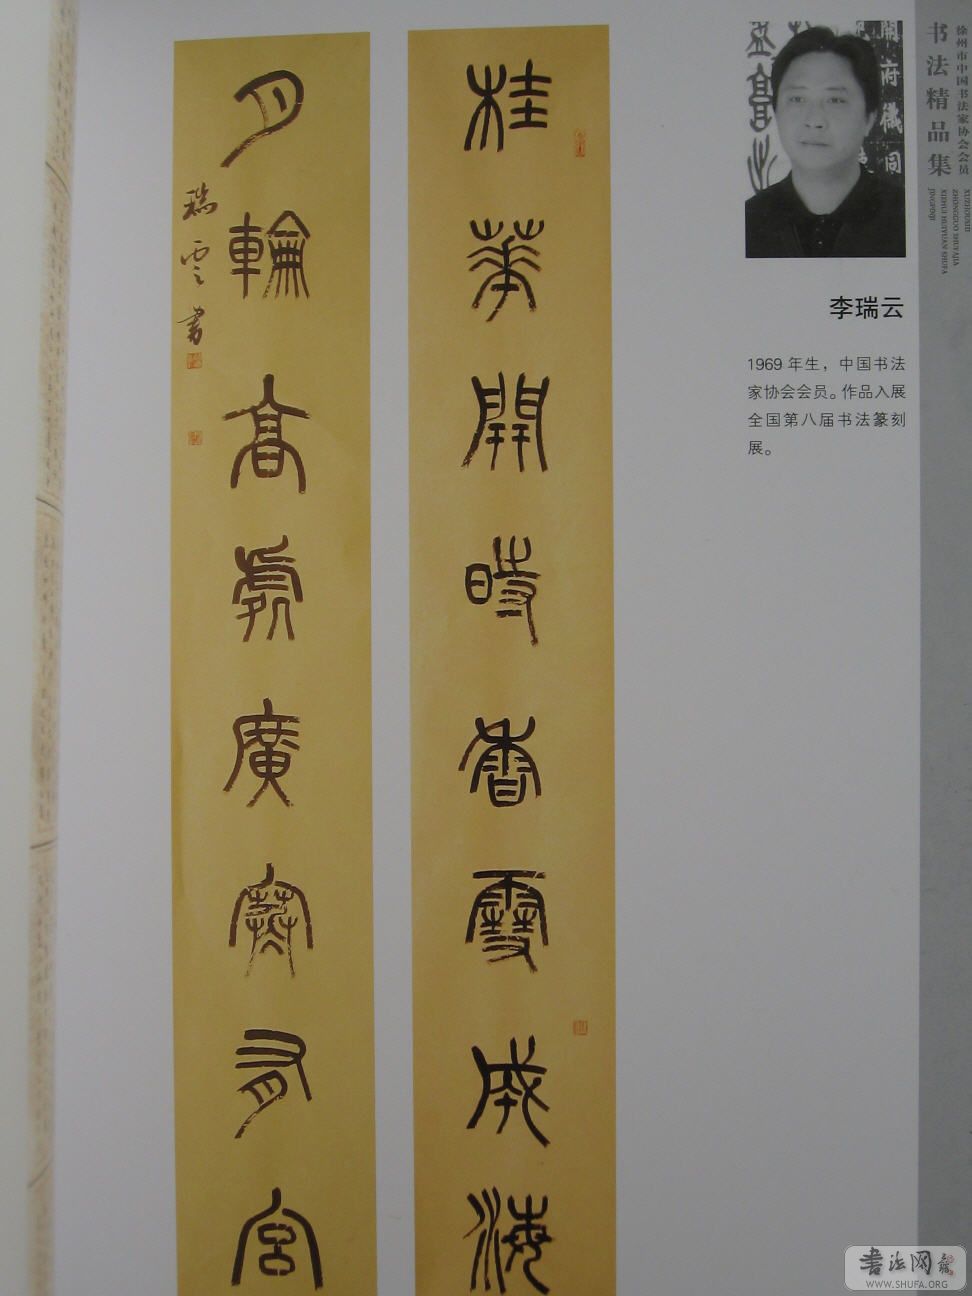 徐州市中国书法家协会会员
书法精品集
XUZHOUSHI
ZHONGGUO SHUFAJIA
XIEHUI HUIYUAN SHUFA
JINGPINJI
開府儀同
李瑞云
1969年生，中国书法
家协会会员。作品入展
全国第八届书法篆刻
展。
桂華開時香雪成海
月輪高處廣寒有宮
瑞雲書
書法网
WWW.SHUFA.ORG